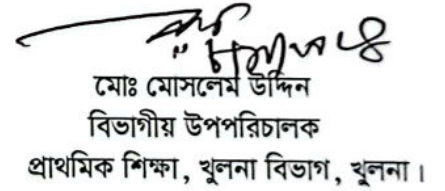 মোঃ মোসলেম উদ্দিন
বিভাগীয় উপপরিচালক
প্রাথমিক শিক্ষা, খুলনা বিভাগ, খুলনা।